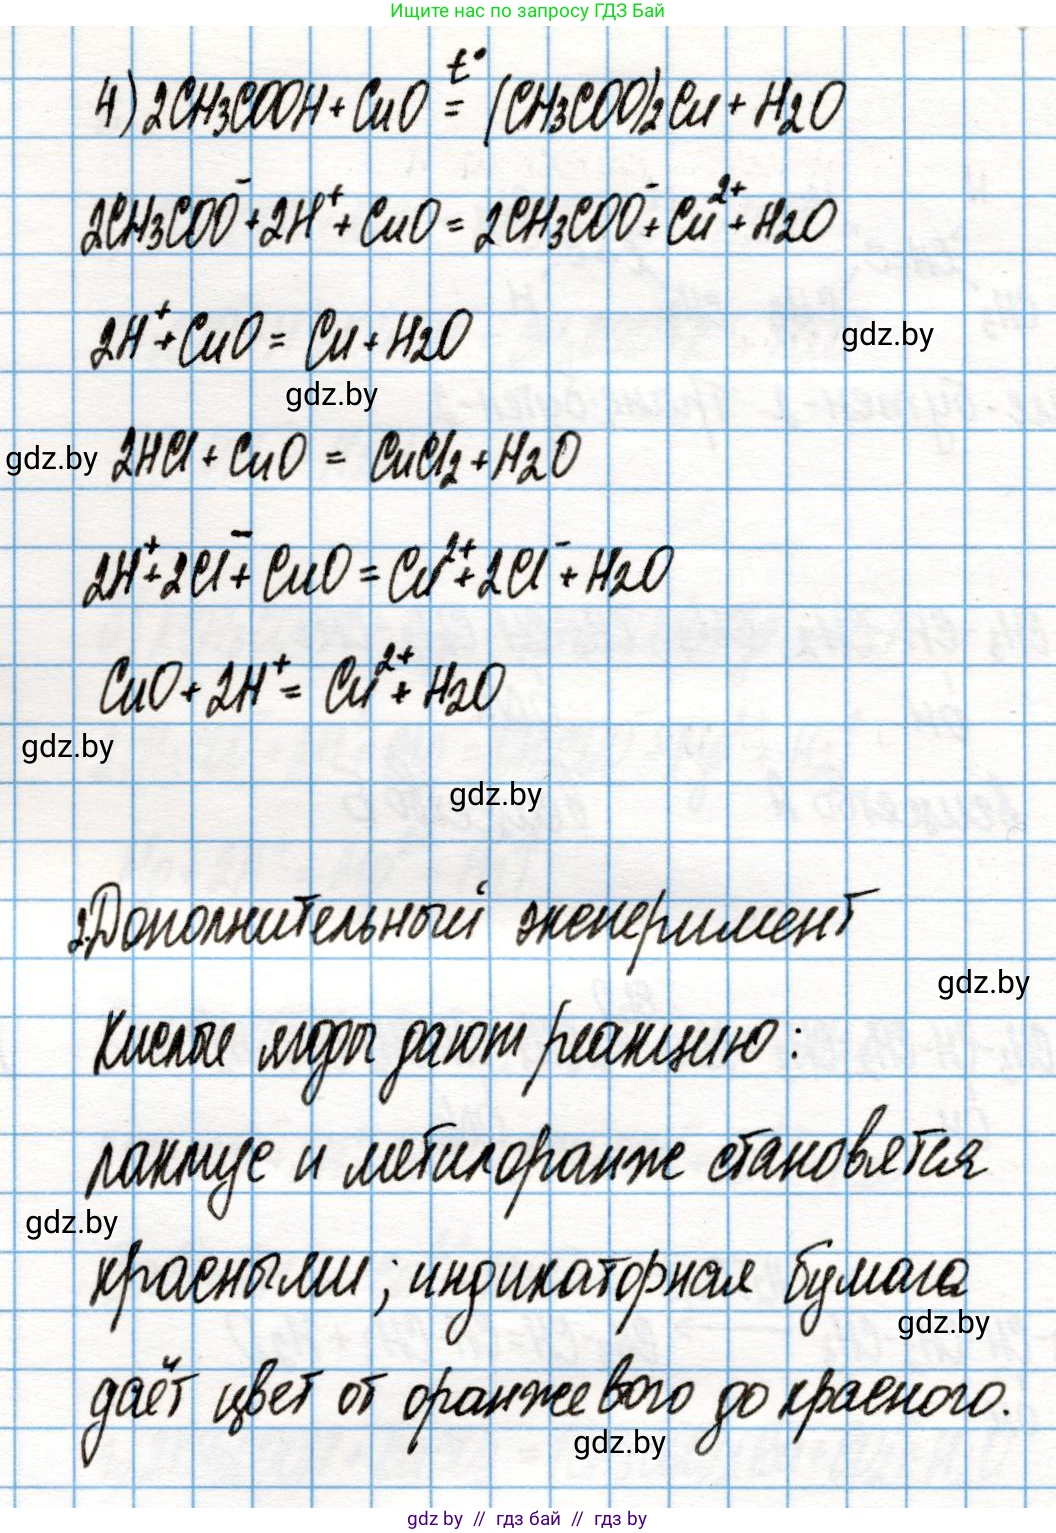 Ищите нас по запросу ГДЗ Бай
4) 2CH3COOH + CuO = (CH3COO)2Cu + H2O
t°
2CH3COO⁻ + 2H⁺ + CuO = 2CH3COO⁻ + Cu²⁺ + H2O
2H⁺ + CuO = Cu + H2O
gdz.by
gdz.by
gdz.by
2HCl + CuO = CuCl2 + H2O
2H⁺ + 2Cl⁻ + CuO = Cu²⁺ + 2Cl⁻ + H2O
CuO + 2H⁺ = Cu²⁺ + H2O
gdz.by
gdz.by
2. Дополнительный эксперимент
gdz.by
Кислые ягоды дают реакцию:
лакмус и метилоранж становятся
gdz.by
красными; индикаторная бумага
gdz.by
даёт цвет от оранжевого до красного.
gdz.by
gdz by // гдз бай // гдз by